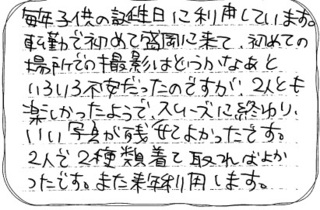 毎年子供の誕生日に利用しています。
転勤で初めて盛岡に来て、初めての
場所での撮影はどうかなあと
いろいろ不安だったのですが、2人とも
楽しかったようで、スムーズに終わり、
いい写真が残せてよかったです。
2人で2種類着て取ればよか
ったです。また来年利用します。